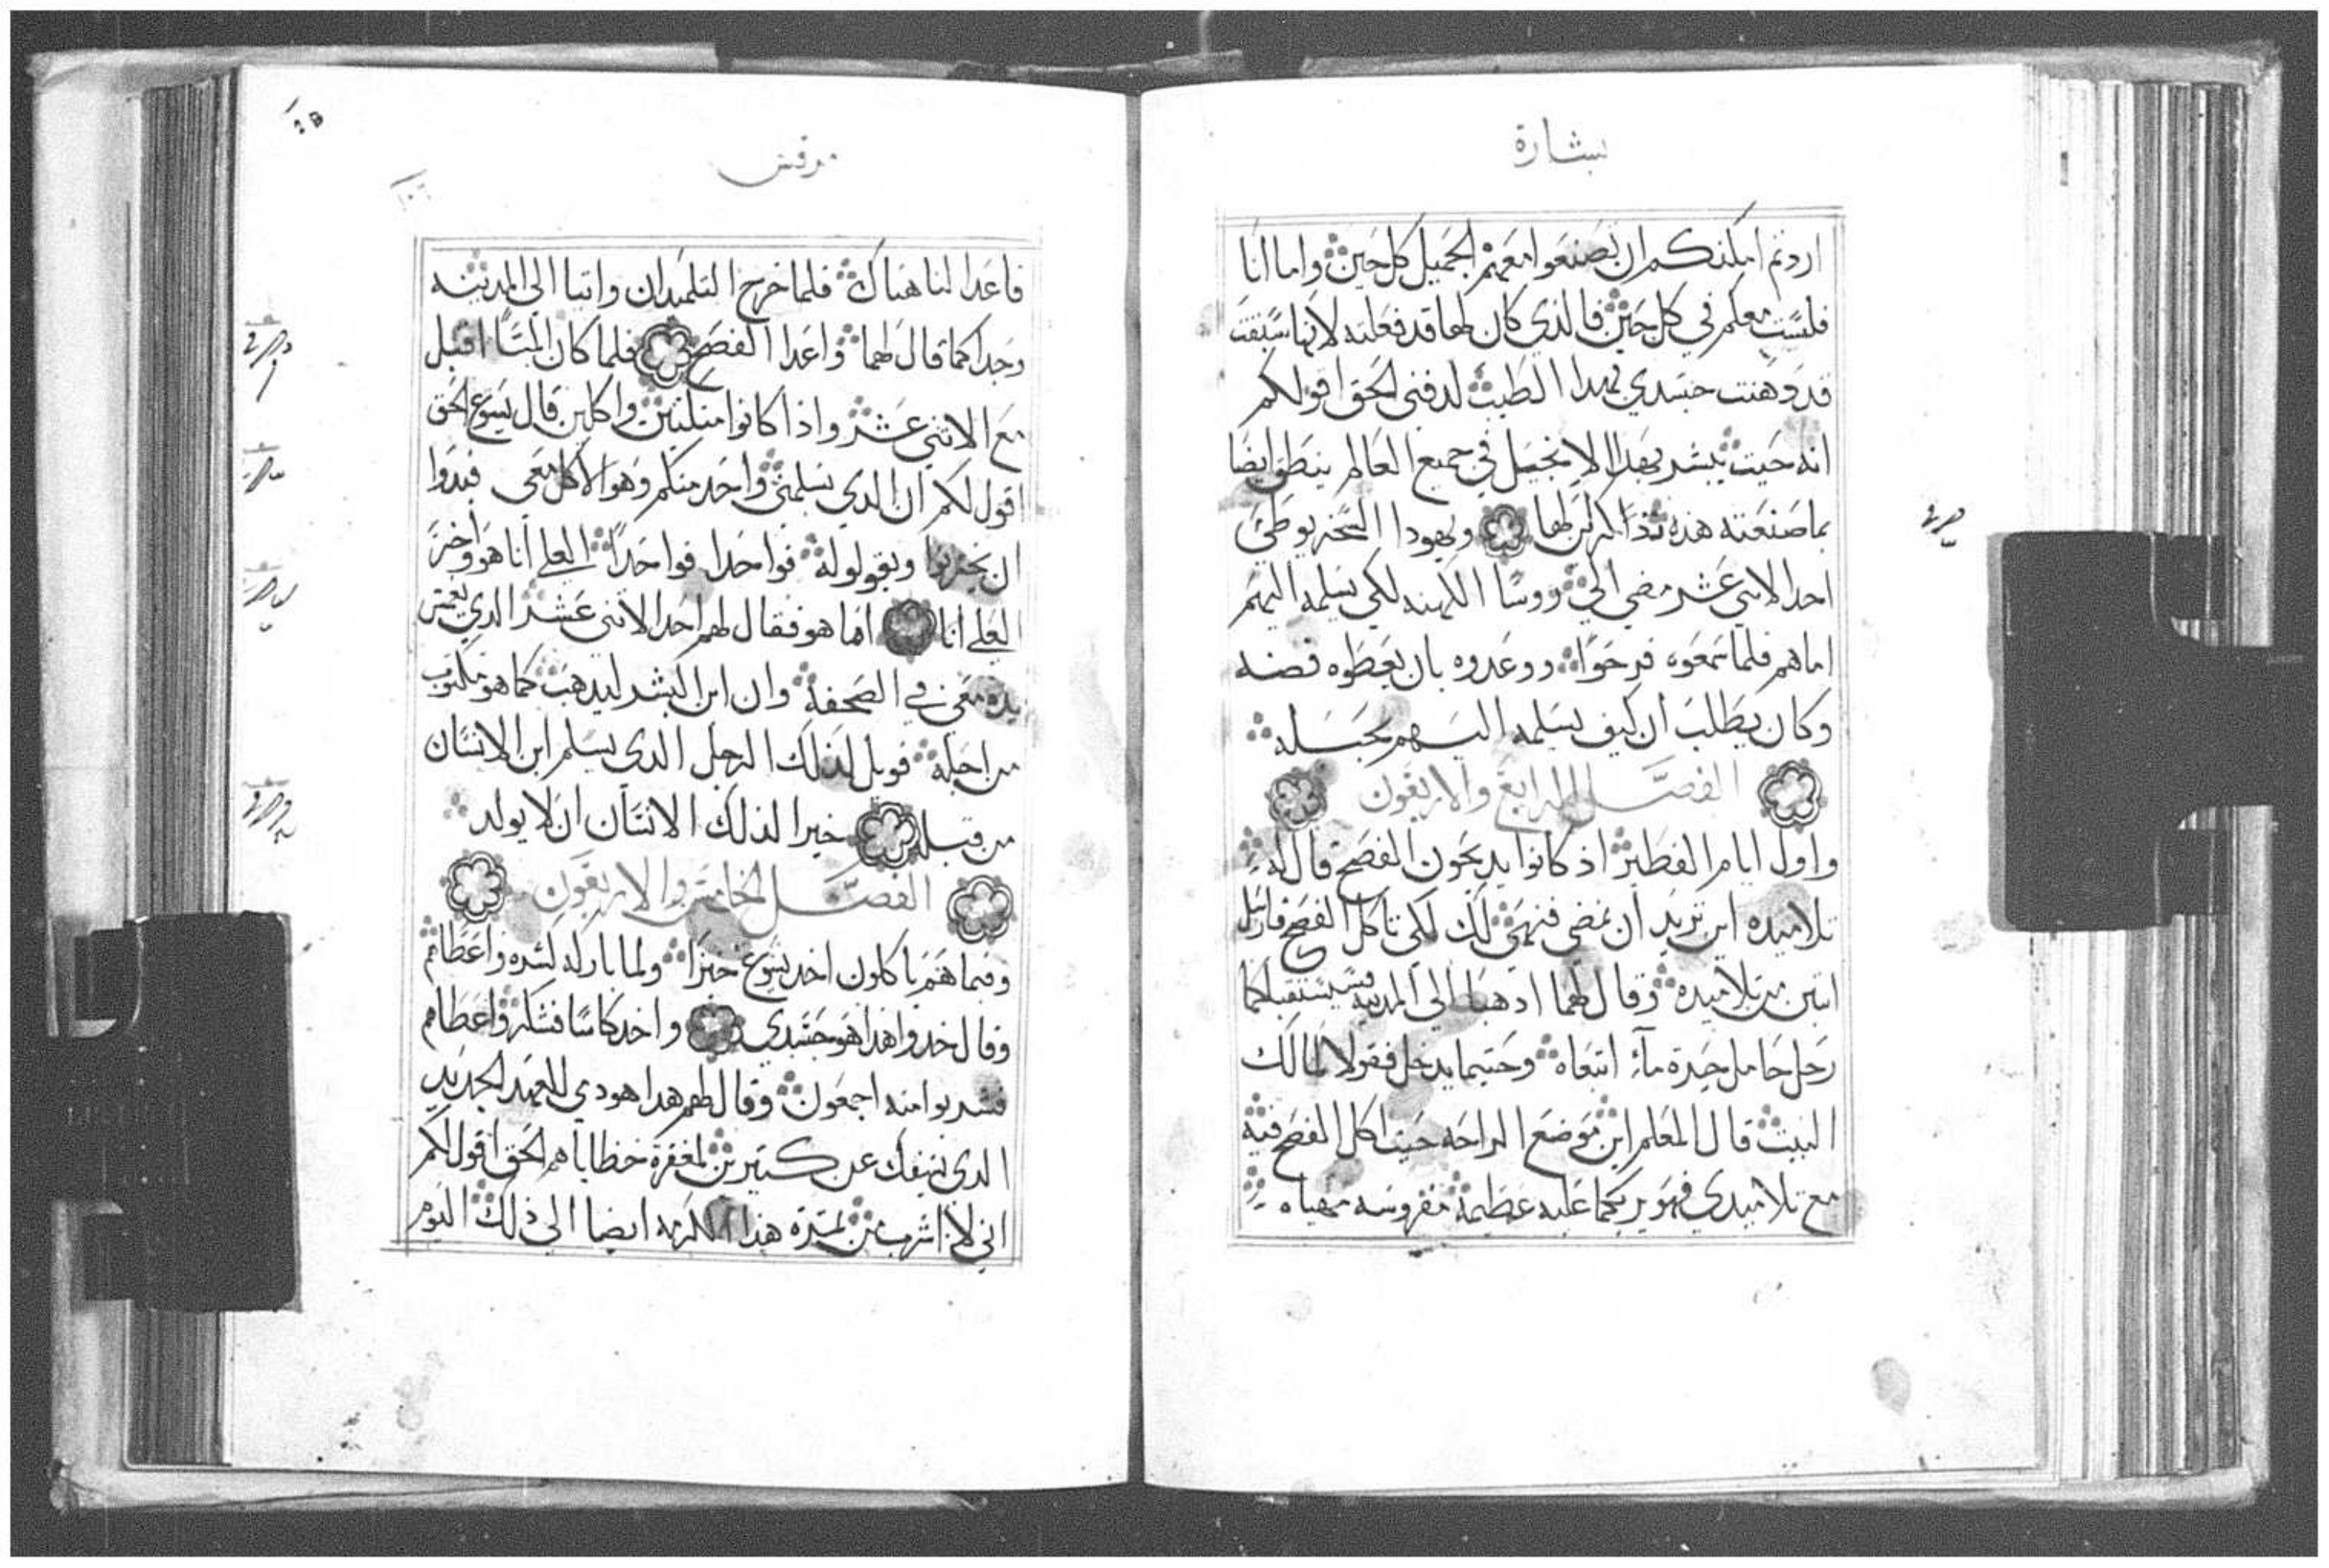 بشارة
اردتم امكنكم ان تصنعوا معهم الجميل كل حين واما انا
فلست معكم في كل حين فالذي كان لها قد فعلته لانها سبقت
قد دهنت جسدي بهدا الطيب لدفني الحق اقول لكم
انه حيت يبشر بهدا الانجيل في جميع العالم ينطق ايضا
بما صنعته هذه تذاكر لها ويهودا السخريوطي
احد الاتني عشر مضي الي روسا الكهنه لكي يسلمه اليهم
اماهم فلما سمعوه فرحوا ووعدوه بان يعطوه فضه
وكان يطلب ان كيف يسلمه اليهم بحيله
الفصل الرابع والاربعون
واول ايام الفطير اذ كانوا يدبحون الفصح قال له
تلاميده اين تريد ان نمضي فنهي لك لكي تاكل الفصح فارسل
اتنين من تلاميده وقال لهما ادهبا الي المدينه فسيستقبلكما
رجل حامل جرة مآء اتبعاه وحيتما يدخل فقولا لمالك
البيت قال المعلم اين موضع الراحه حيت اكل الفصح فيه
مع تلاميدي فهو يريكما عليه عظيمة مفروسه مهياه
مرقس
فاعدا لنا هناك فلما خرج التلميدان واتيا الي المدينه
وجدا كما قال لهما واعدا الفصح فلما كان المسا اقبل
مع الاتني عشر واذا كانوا متكئين واكلين قال يسوع الحق
اقول لكم ان الدي يسلمني واحد منكم وهو الاكل معي فبدوا
ان يحزنوا ويقولو له فواحدا فواحدا العلي انا هو واخر
العلي انا اما هو فقال لهم احد الاتني عشر الدي يغمس
يده معي في الصحفة وان ابن البشر ليدهب كما هو مكتوب
من اجله فويل لذلك الرجل الدي يسلم ابن الانسان
من قبله خيرا لذلك الانسان ان لا يولد
الفصل الخامس والاربعون
وفيما هم ياكلون اخد يسوع خبزا ولما باركه كسره واعطاهم
وقال خدوا هدا هو جسدي واخد كاسا فشكر واعطاهم
فشربوا منه اجمعون وقال لهم هدا هو دمي للعهد الجديد
الدي يهرق عن كتيرين لمغفرة خطاياهم الحق اقول لكم
اني لا اشرب من تمرة هذا الكرمه ايضا الي ذلك اليوم